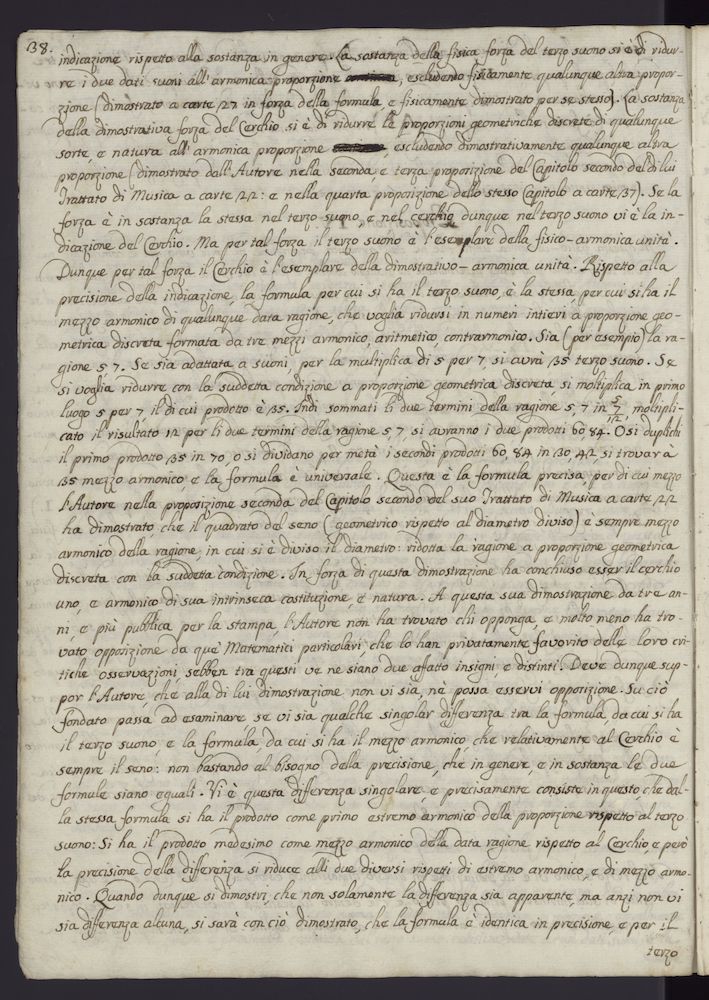 38.
indicazione rispetto alla sostanza in genere. La sostanza della fisica forza del terzo suono si è di ridur-
re i due dati suoni all'armonica proporzione, escludendo fisicamente qualunque altra propor-
zione (dimostrato a carte 27 in forza della formula, e fisicamente dimostrato per se stesso). La sostanza
della dimostrativa forza del Cerchio si è di ridurre le proporzioni geometriche discrete di qualunque
sorte, e natura all'armonica proporzione, escludendo dimostrativamente qualunque altra
proporzione (dimostrato dall'Autore nella seconda, e terza proposizione del Capitolo secondo del di lui
Trattato di Musica a carte 22: e nella quarta proposizione dello stesso Capitolo a carte 37). Se la
forza è in sostanza la stessa nel terzo suono, e nel cerchio, dunque nel terzo suono vi è la in-
dicazione del Cerchio. Ma per tal forza il terzo suono è l'esemplare della fisico-armonica unità.
Dunque per tal forza il Cerchio è l'esemplare della dimostrativo-armonica unità. Rispetto alla
precisione della indicazione, la formula per cui si ha il terzo suono, è la stessa, per cui si ha il
mezzo armonico di qualunque data ragione, che voglia ridursi in numeri intieri a proporzione geo-
metrica discreta formata da tre mezzi armonico, aritmetico, contrarmonico. Sia (per esempio) la ra-
gione 5, 7. Se sia adattata a suoni, per la multiplica di 5 per 7, si avrà 35 terzo suono. Se
si voglia ridurre con la suddetta condizione a proporzione geometrica discreta, si moltiplica in primo
luogo 5 per 7, il di cui prodotto è 35. Indi sommati li due termini della ragione 5, 7 in 5 7 12, moltipli-
cato il risultato 12 per li due termini della ragione 5, 7, si avranno i due prodotti 60, 84. O si duplichi
il primo prodotto 35 in 70, o si dividano per metà i secondi prodotti 60, 84 in 30, 42, si troverà
35 mezzo armonico e la formula è universale. Questa è la formula precisa, per di cui mezzo
l'Autore nella proposizione seconda del Capitolo secondo del suo Trattato di Musica a carte 22
ha dimostrato che il quadrato del seno (geometrico rispetto al diametro diviso) è sempre mezzo
armonico della ragione, in cui si è diviso il diametro: ridotta la ragione a proporzione geometrica
discreta con la suddetta condizione. In forza di questa dimostrazione ha conchiuso esser il cerchio
uno, e armonico di sua intrinseca costituzione, e natura. A questa sua dimostrazione da tre an-
ni, e più pubblica per la stampa, l'Autore non ha trovato chi opponga, e molto meno ha tro-
vato opposizione da que' Matematici particolari, che lo han privatamente favorito delle loro cri-
tiche osservazioni, sebben tra questi ve ne siano due affatto insigni, e distinti. Deve dunque sup-
por l'Autore, che alla di lui dimostrazione non vi sia, nè possa esservi opposizione. Su ciò
fondato passa ad esaminare se vi sia qualche singolar differenza tra la formula, da cui si ha
il terzo suono, e la formula, da cui si ha il mezzo armonico, che relativamente al Cerchio è
sempre il seno: non bastando al bisogno della precisione, che in genere, e in sostanza le due
formule siano eguali. Vi è questa differenza singolare, e precisamente consiste in questo, che dal-
la stessa formula si ha il prodotto come primo estremo armonico della proporzione rispetto al terzo
suono: Si ha il prodotto medesimo come mezzo armonico della data ragione rispetto al Cerchio, e però
la precisione della differenza si riduce alli due diversi rispetti di estremo armonico, e di mezzo armo-
nico. Quando dunque si dimostri, che non solamente la differenza sia apparente, ma anzi non vi
sia differenza alcuna, si sarà con ciò dimostrato, che la formula è identica in precisione, e per il
terzo